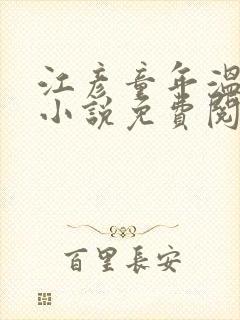 江彦童年溫
小說免費閱
百里長安